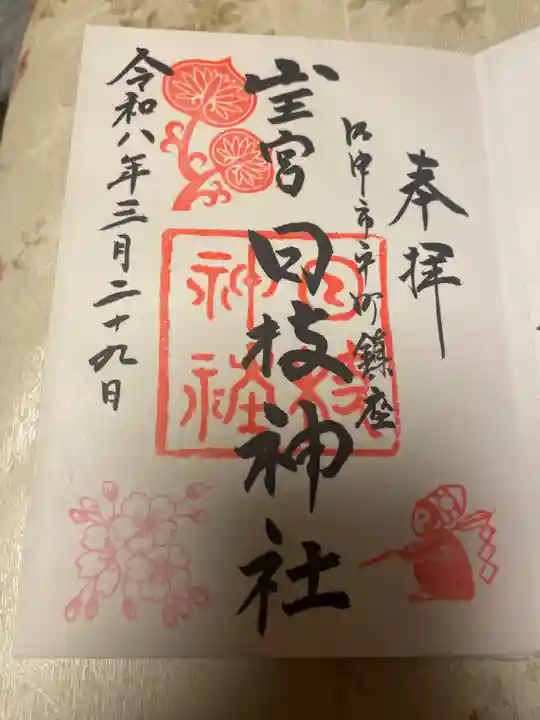 奉拝
沼津市平町鎮座
山王宮 日枝神社
日枝神社
令和八年三月二十九日